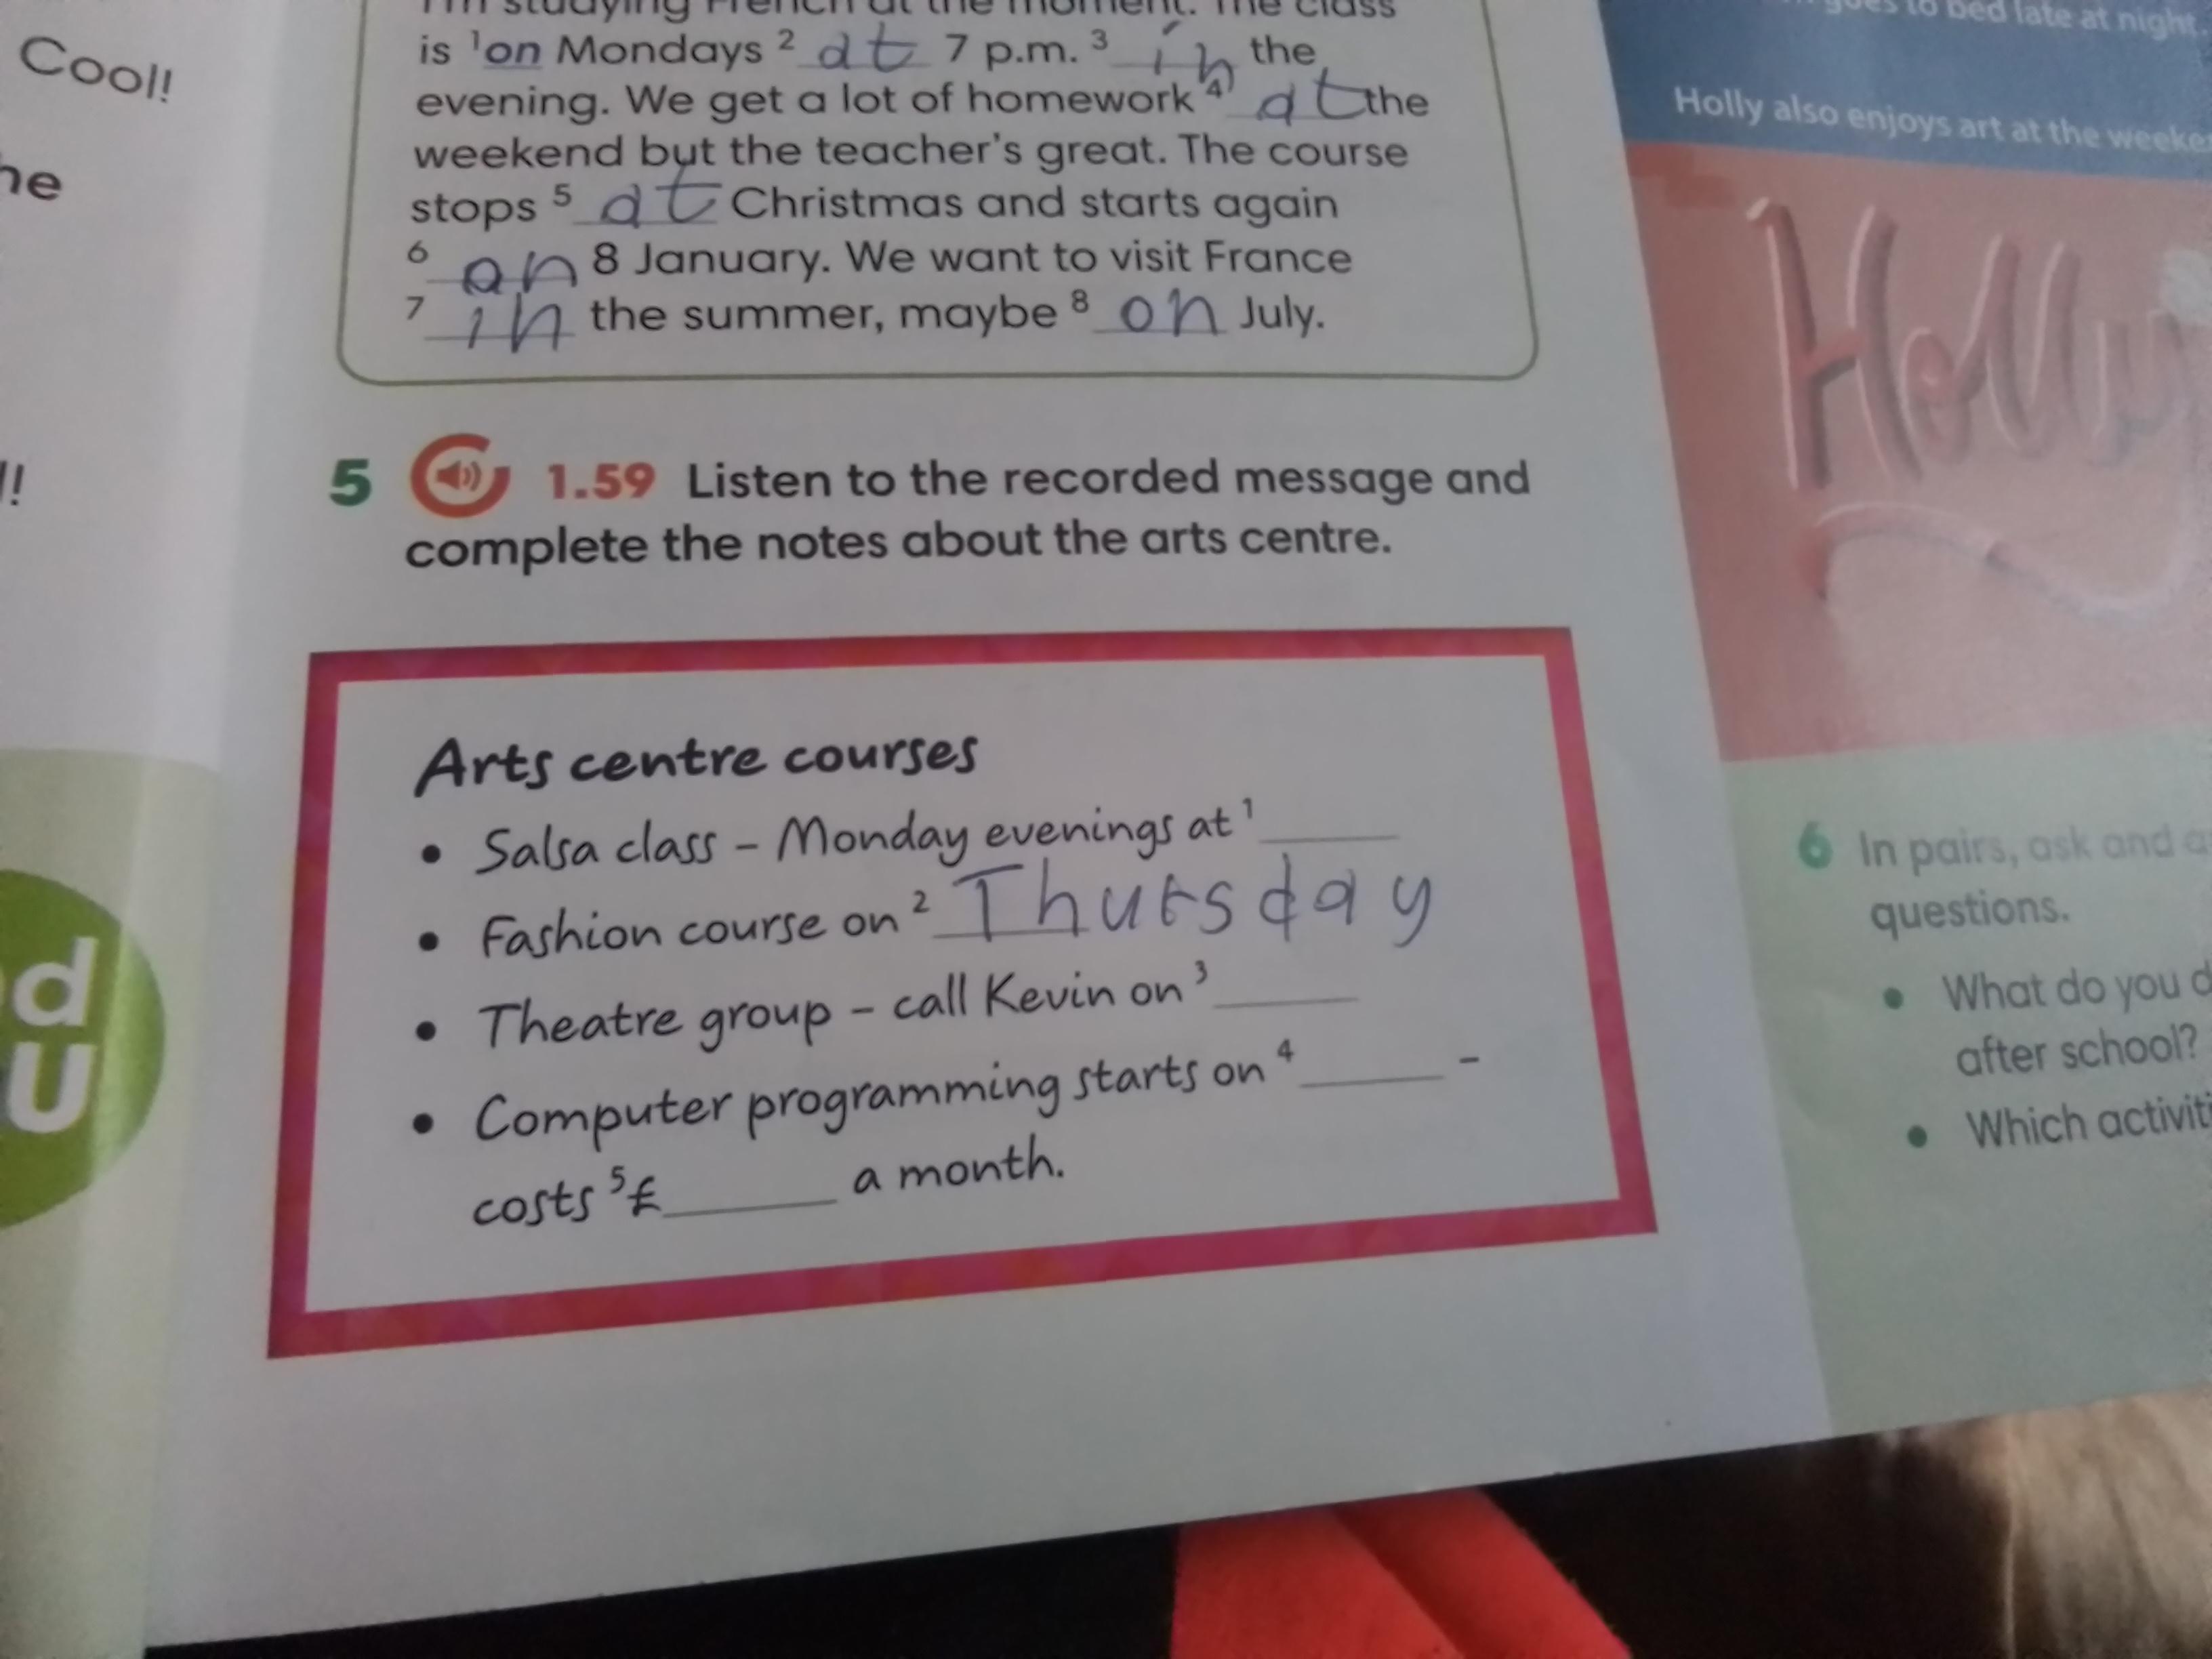 Cool!
he
!
d
U
I'm studying French at the moment. The class
is ¹on Mondays ² at 7 p.m. ³ in the
evening. We get a lot of homework ⁴ at the
weekend but the teacher's great. The course
stops ⁵ at Christmas and starts again
⁶ on 8 January. We want to visit France
⁷ in the summer, maybe ⁸ on July.
5 1.59 Listen to the recorded message and
complete the notes about the arts centre.
Arts centre courses
• Salsa class – Monday evenings at ¹
• Fashion course on ² Thursday
• Theatre group – call Kevin on ³
• Computer programming starts on ⁴ –
costs ⁵£ a month.
goes to bed late at night.
Holly also enjoys art at the weeke
Holly
6 In pairs, ask and a
questions.
• What do you d
after school?
• Which activiti